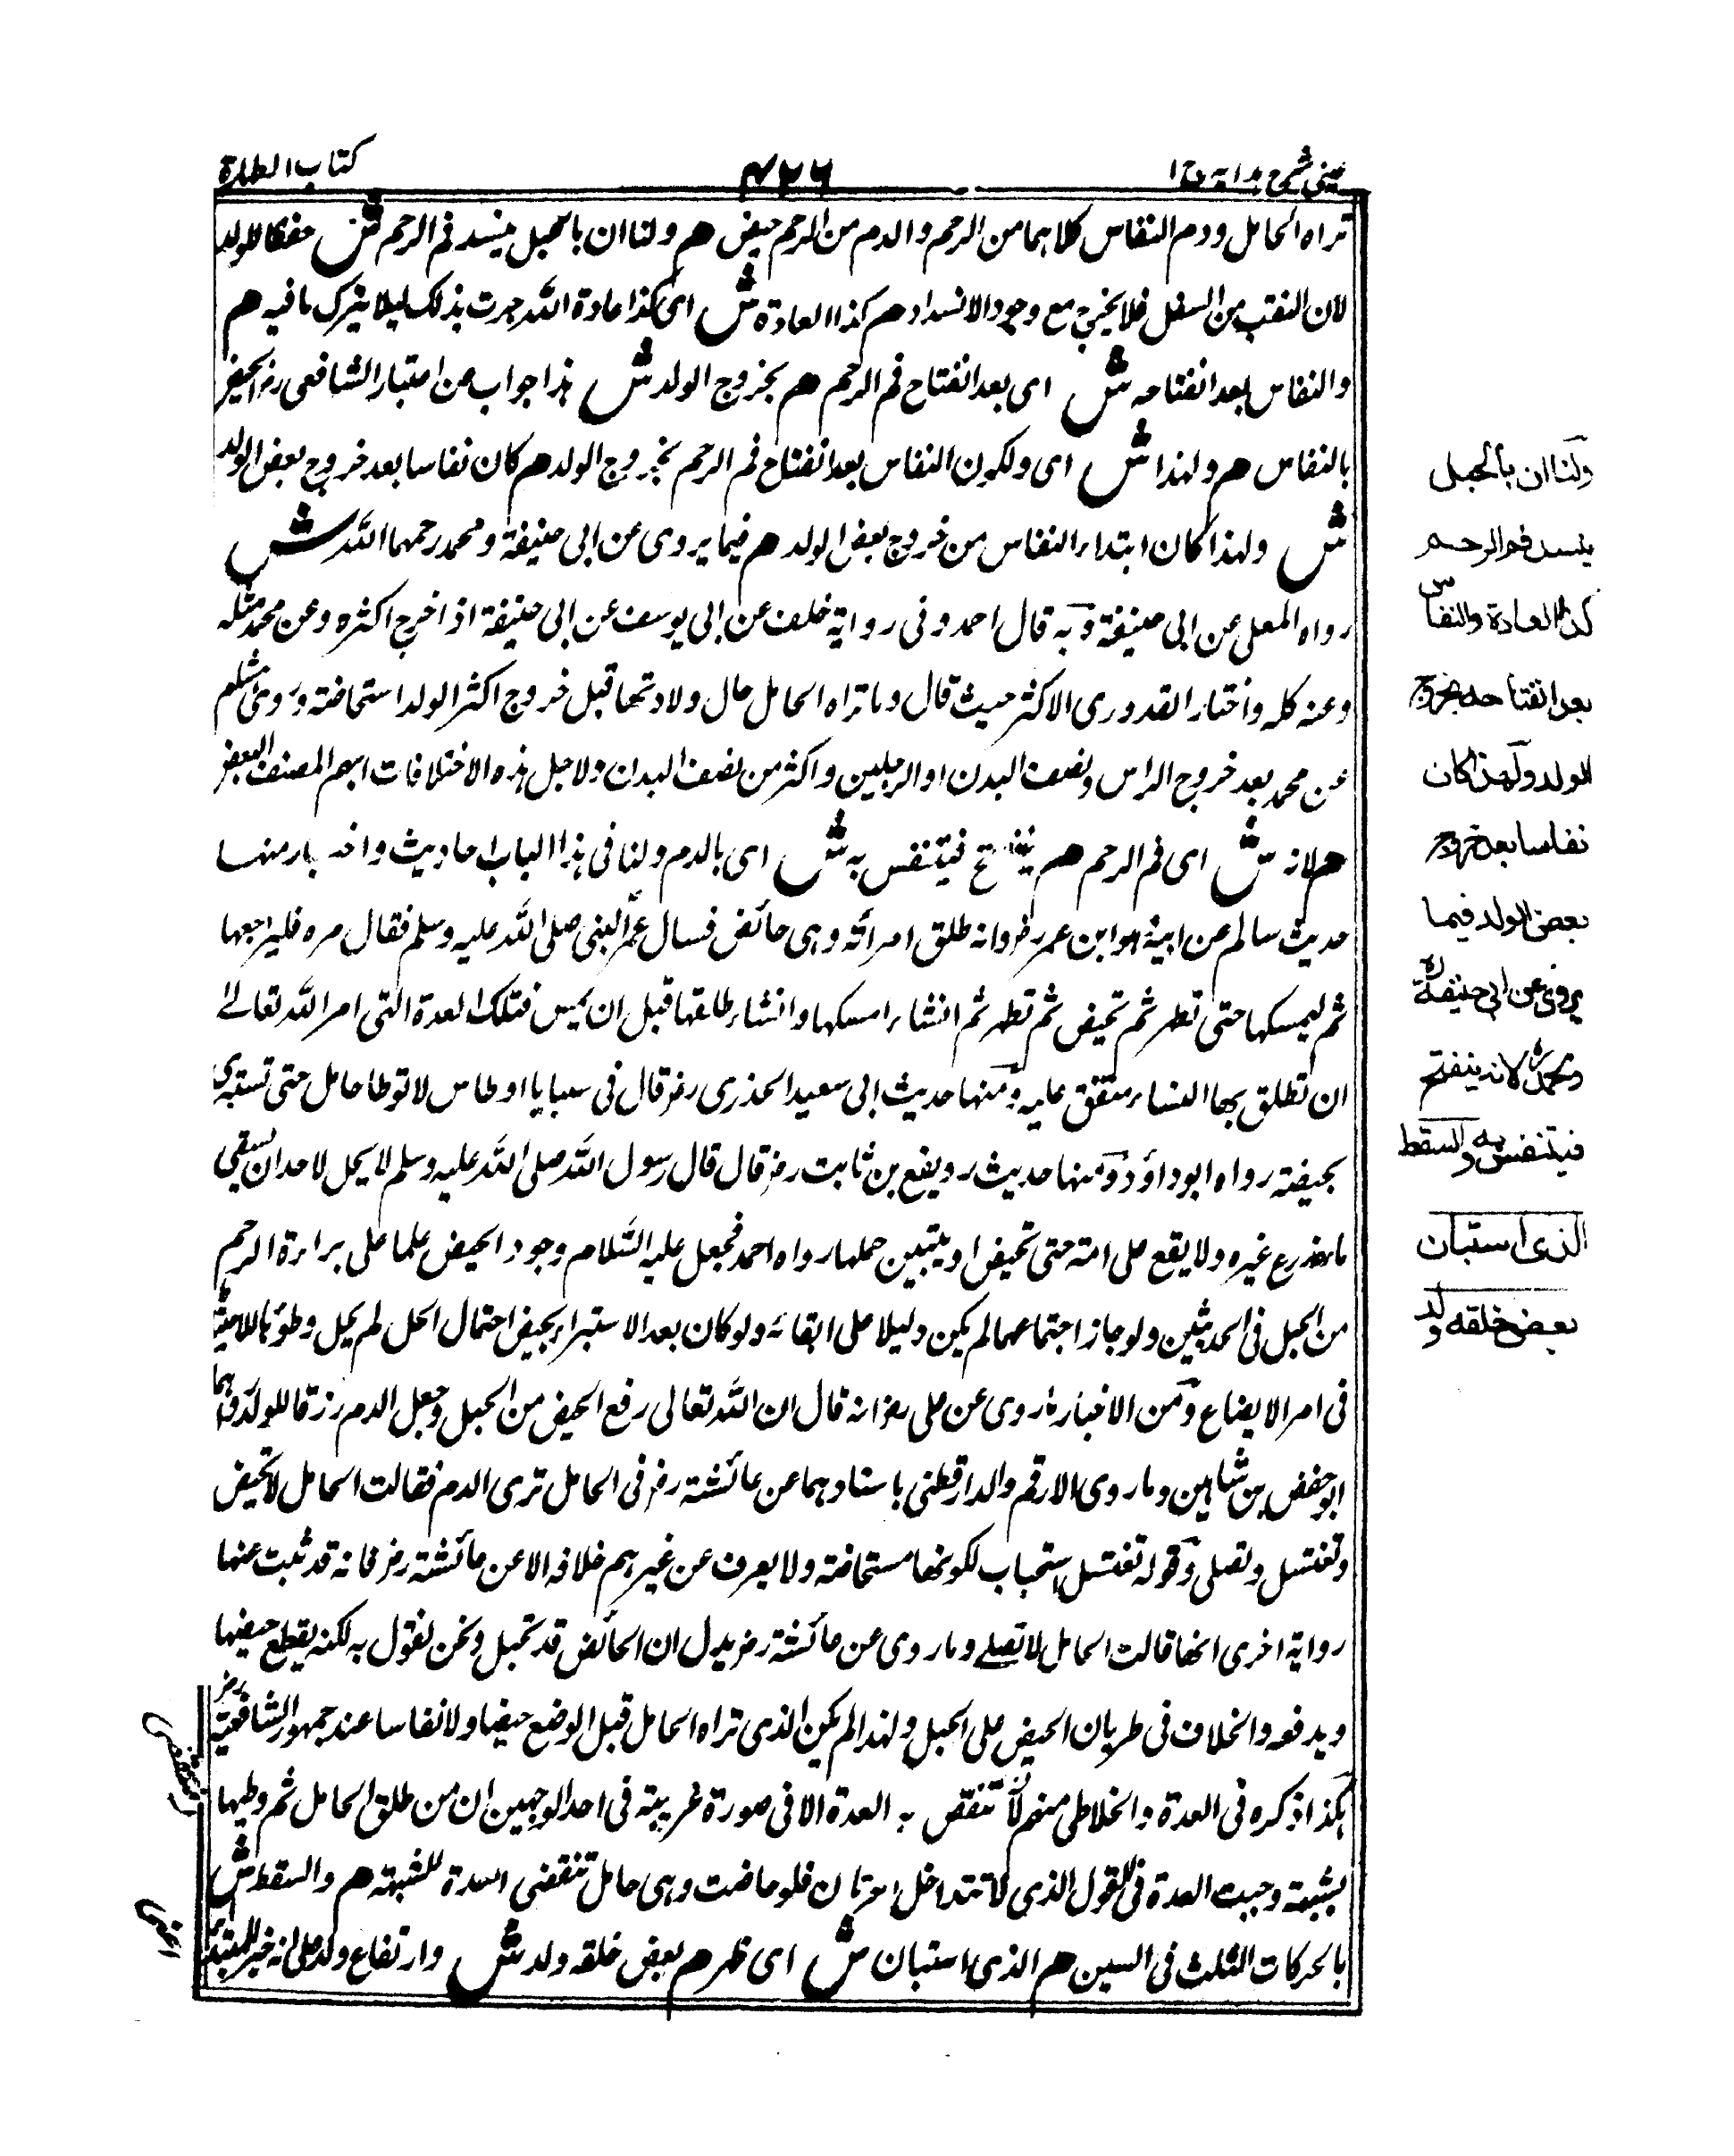 عيني شرح هدايه ج ١
٤٢٦
كتاب الطهارة
تراه الحامل ودم النفاس كلاهما من الرحم والدم من الرحم حيض هم ولنا ان بالحبل ينسد فم الرحم ش حفظا للولد
لان الثقب من اسفل فلا يخرج مع وجود الانسداد هم كذا العادة ش اى كذا عادة الله جرت بذلك ليلا ينزل ما فيه هم
والنفاس بعد انفتاحه ش اى بعد انفتاح فم الرحم هم بخروج الولد ش هذا جواب عن اعتبار الشافعى رض الحيض
بالنفاس هم ولهذا ش اى ولكون النفاس بعد انفتاح فم الرحم بخروج الولد هم كان نفاسا بعد خروج بعض الولد
ش ولهذا كان ابتداء النفاس من خروج بعض الولد هم فيما يروى عن ابى حنيفة ومحمد رحمهما الله ش
رواه المعلى عن ابى حنيفة وبه قال احمد وفى رواية خلف عن ابى يوسف عن ابى حنيفة اذا خرج اكثره وعن محمد مثله
وعنه كله واختار القدورى الاكثر حيث قال وما تراه الحامل حال ولادتها قبل خروج اكثر الولد استحاضة وروى هشام
عن محمد بعد خروج الراس ونصف البدن او الرجلين واكثر من نصف البدن ولاجل هذه الاختلافات ابهم المصنف البعض
هم لانه ش اى فم الرحم هم ينفتح فيتنفس به ش اى بالدم ولنا فى هذا الباب احاديث واخبار منها
حديث سالم عن ابيه هو ابن عمر رض وانه طلق امرأته وهى حائض فسال عمر النبى صلى الله عليه وسلم فقال مره فليراجعها
ثم ليمسكها حتى تطهر ثم تحيض ثم تطهر ثم انشاء امسكها وانشاء طلقها قبل ان يمس فتلك العدة التى امر الله تعالى
ان تطلق بها النساء متفق عليه ومنها حديث ابى سعيد الخدرى رض قال فى سبايا اوطاس لا توطا حامل حتى تستبرى
بحيضة رواه ابو داؤد ومنها حديث رويفع بن ثابت رض قال قال رسول الله صلى الله عليه وسلم لا يحل لاحد ان يسقى
ماءه زرع غيره ولا يقع على امته حتى تحيض او يتبين حملها رواه احمد فجعل عليه السلام وجود الحيض علما على براءة الرحم
من الحبل فى الحديثين ولو جاز اجتماعهما لم يكن دليلا على انتفائه ولو كان بعد الاستبراء بحيض احتمال الحمل لم يحل وطؤها للاحتياط
فى امر الابضاع ومن الاخبار ما روى عن على رض انه قال ان الله تعالى رفع الحيض من الحبل وجعل الدم رزقا للولد رواهما
ابو حفص بن شاهين وما روى الارقم والدارقطنى باسنادهما عن عائشة رض فى الحامل ترى الدم فقالت الحامل لا تحيض
وتغتسل وتصلى وقوله تغتسل استحباب لكونها مستحاضة ولا يعرف عن غيرهم خلافه الا عن عائشة رض فانه قد ثبت عنها
رواية اخرى انها قالت الحامل لا تصلى وما روى عن عائشة رض يدل ان الحائض قد تحبل ونحن نقول به لكنه يقطع حيضها
ويدفعه والخلاف فى طريان الحيض على الحبل ولهذا لم يكن الذى تراه الحامل قبل الوضع حيضا ولا نفاسا عند جمهور الشافعية
هكذا ذكره فى العدة والخلاطى منهم لا تنقض به العدة الا فى صورة غريبة فى احد الوجهين ان من طلق الحامل ثم وطيها
بشبهة وجبت العدة فى القول الذى لا تتداخل فلو حاضت وهى حامل تنقضى العدة للشبهة هم والسقط ش
بالحركات الثلث فى السين هم الذى استبان ش اى ظهر هم بعض خلقه ولد ش وارتفاع ولد على انه خبر المبتدأ
ولنا ان بالحبل
ينسد فم الرحم
كذا العادة والنفاس
بعد انفتاحه بخروج
الولد ولهذا كان
نفاسا بعد خروج
بعض الولد فيما
يروى عن ابى حنيفة
ومحمد لانه ينفتح
فيتنفس به والسقط
الذى استبان
بعض خلقه ولد